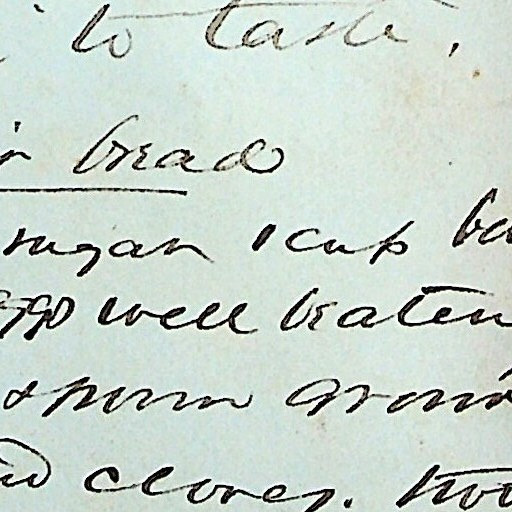 to taste.
bread
sugar 1 cup
eggs well beaten
spoon
cloves.